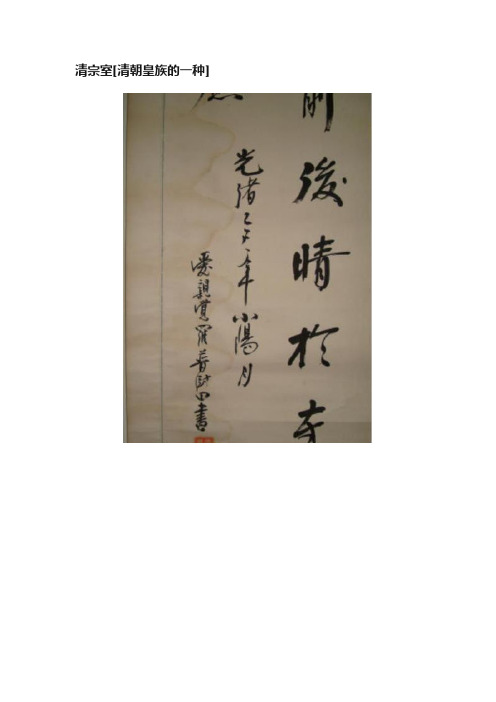 清宗室[清朝皇族的一种]
前後晴於
光緒年小陽月
愛親覺羅普書